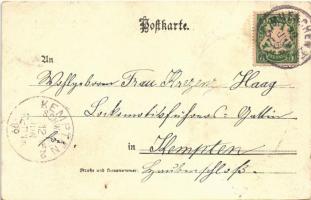 Postkarte.
MÜNCHEN
An
Wohlgeboren Frau Krezenz Haag
Lockmotivführers-Gattin
in Kempten
Straße und Hausnummer:
KEMPTEN 2